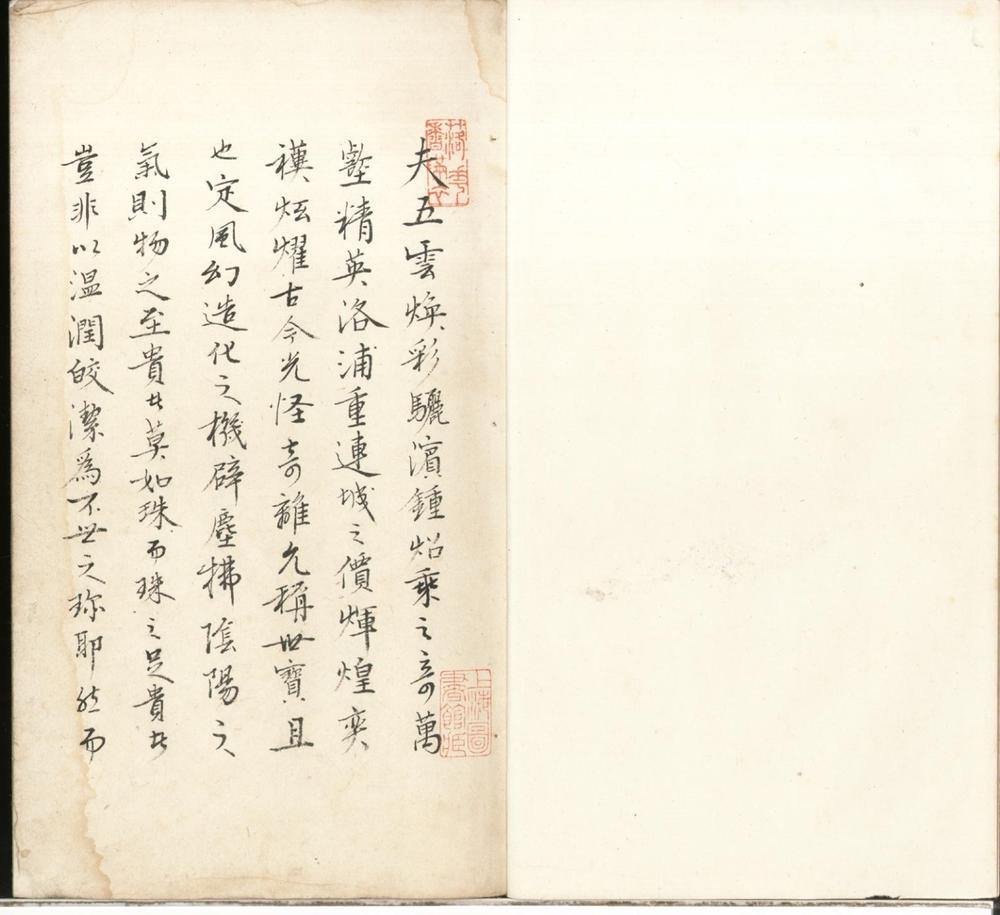 夫五雲煥彩驪濱鍾炤乘之奇萬
壑精英洛浦重連城之價輝煌奕
襈炫耀古今光怪奇離允稱世寶且
也定風幻造化之機辟塵拂陰陽之
氣則物之至貴者莫如珠而珠之足貴者
豈非以温潤皎潔爲不世之珎耶然而
上海圖
書館藏